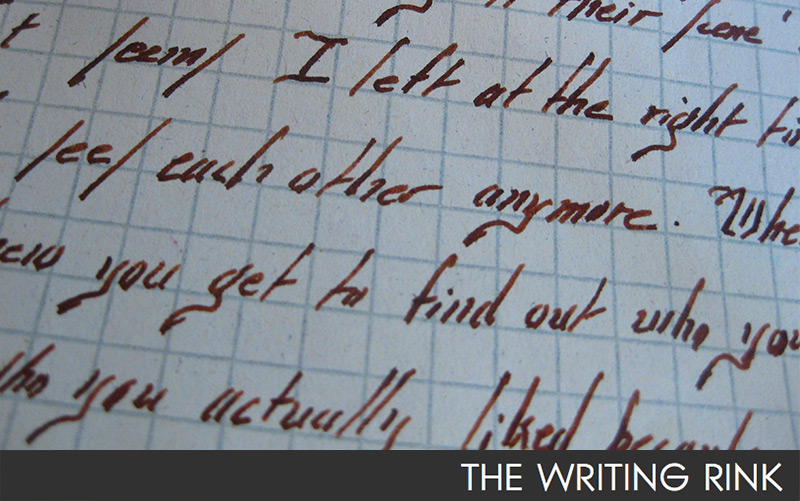 their scene
t seems I left at the right tim
sees each other anymore. Whe
ew you get to find out who you
ho you actually liked becaus
THE WRITING RINK